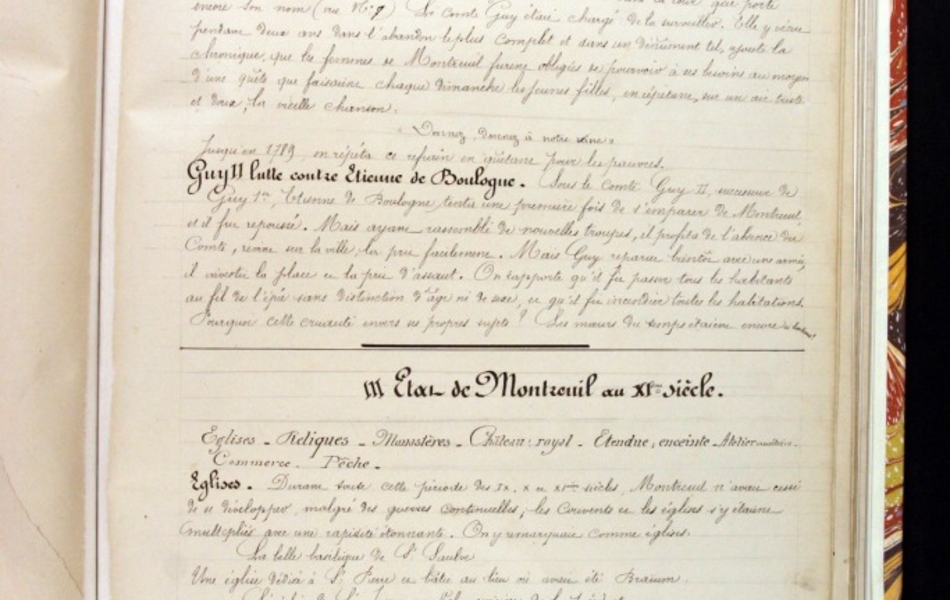 encore son nom (rue N° 9) Le Comte Guy était chargé de la surveiller. Elle y vécut
pendant deux ans dans l'abandon le plus complet et dans un dénûment tel, ajoute la
chronique, que les femmes de Montreuil furent obligées de pourvoir à ses besoins au moyen
d'une quête que faisaient chaque dimanche les jeunes filles, en répétant, sur un air triste
et doux, la vieille chanson.
« Donnez, donnez à notre reine »
Jusqu'en 1789, on répéta ce refrain en quêtant pour les pauvres.
Guy II lutte contre Etienne de Boulogne. Sous le Comte Guy II, successeur de
Guy 1er, Etienne de Boulogne tenta une première fois de s'emparer de Montreuil
et il fut repoussé. Mais ayant rassemblé de nouvelles troupes, il profita de l'absence du
Comte, revint sur la ville, la prit facilement. Mais Guy reparut bientôt avec une armée,
il investit la place et la prit d'assaut. On rapporte qu'il fit passer tous les habitants
au fil de l'épée sans distinction d'âge ni de sexe, et qu'il fit incendier toutes les habitations.
Pourquoi cette cruauté envers ses propres sujets ? Les mœurs du temps étaient encore
III Etat de Montreuil au XIème siècle.
Eglises - Reliques - Monastères - Château royal - Etendue, enceinte - Atelier monétaire -
Commerce - Pêche -
Eglises. Durant toute cette période des IX, X et XIème siècles, Montreuil n'avait cessé
de se développer, malgré des guerres continuelles; les Couvents et les églises s'y étaient
multipliés avec une rapidité étonnante. On y remarquait comme églises.
La belle basilique de St Saulve
Une église dédiée à St Pierre et bâtie au lieu où avait été Braium.